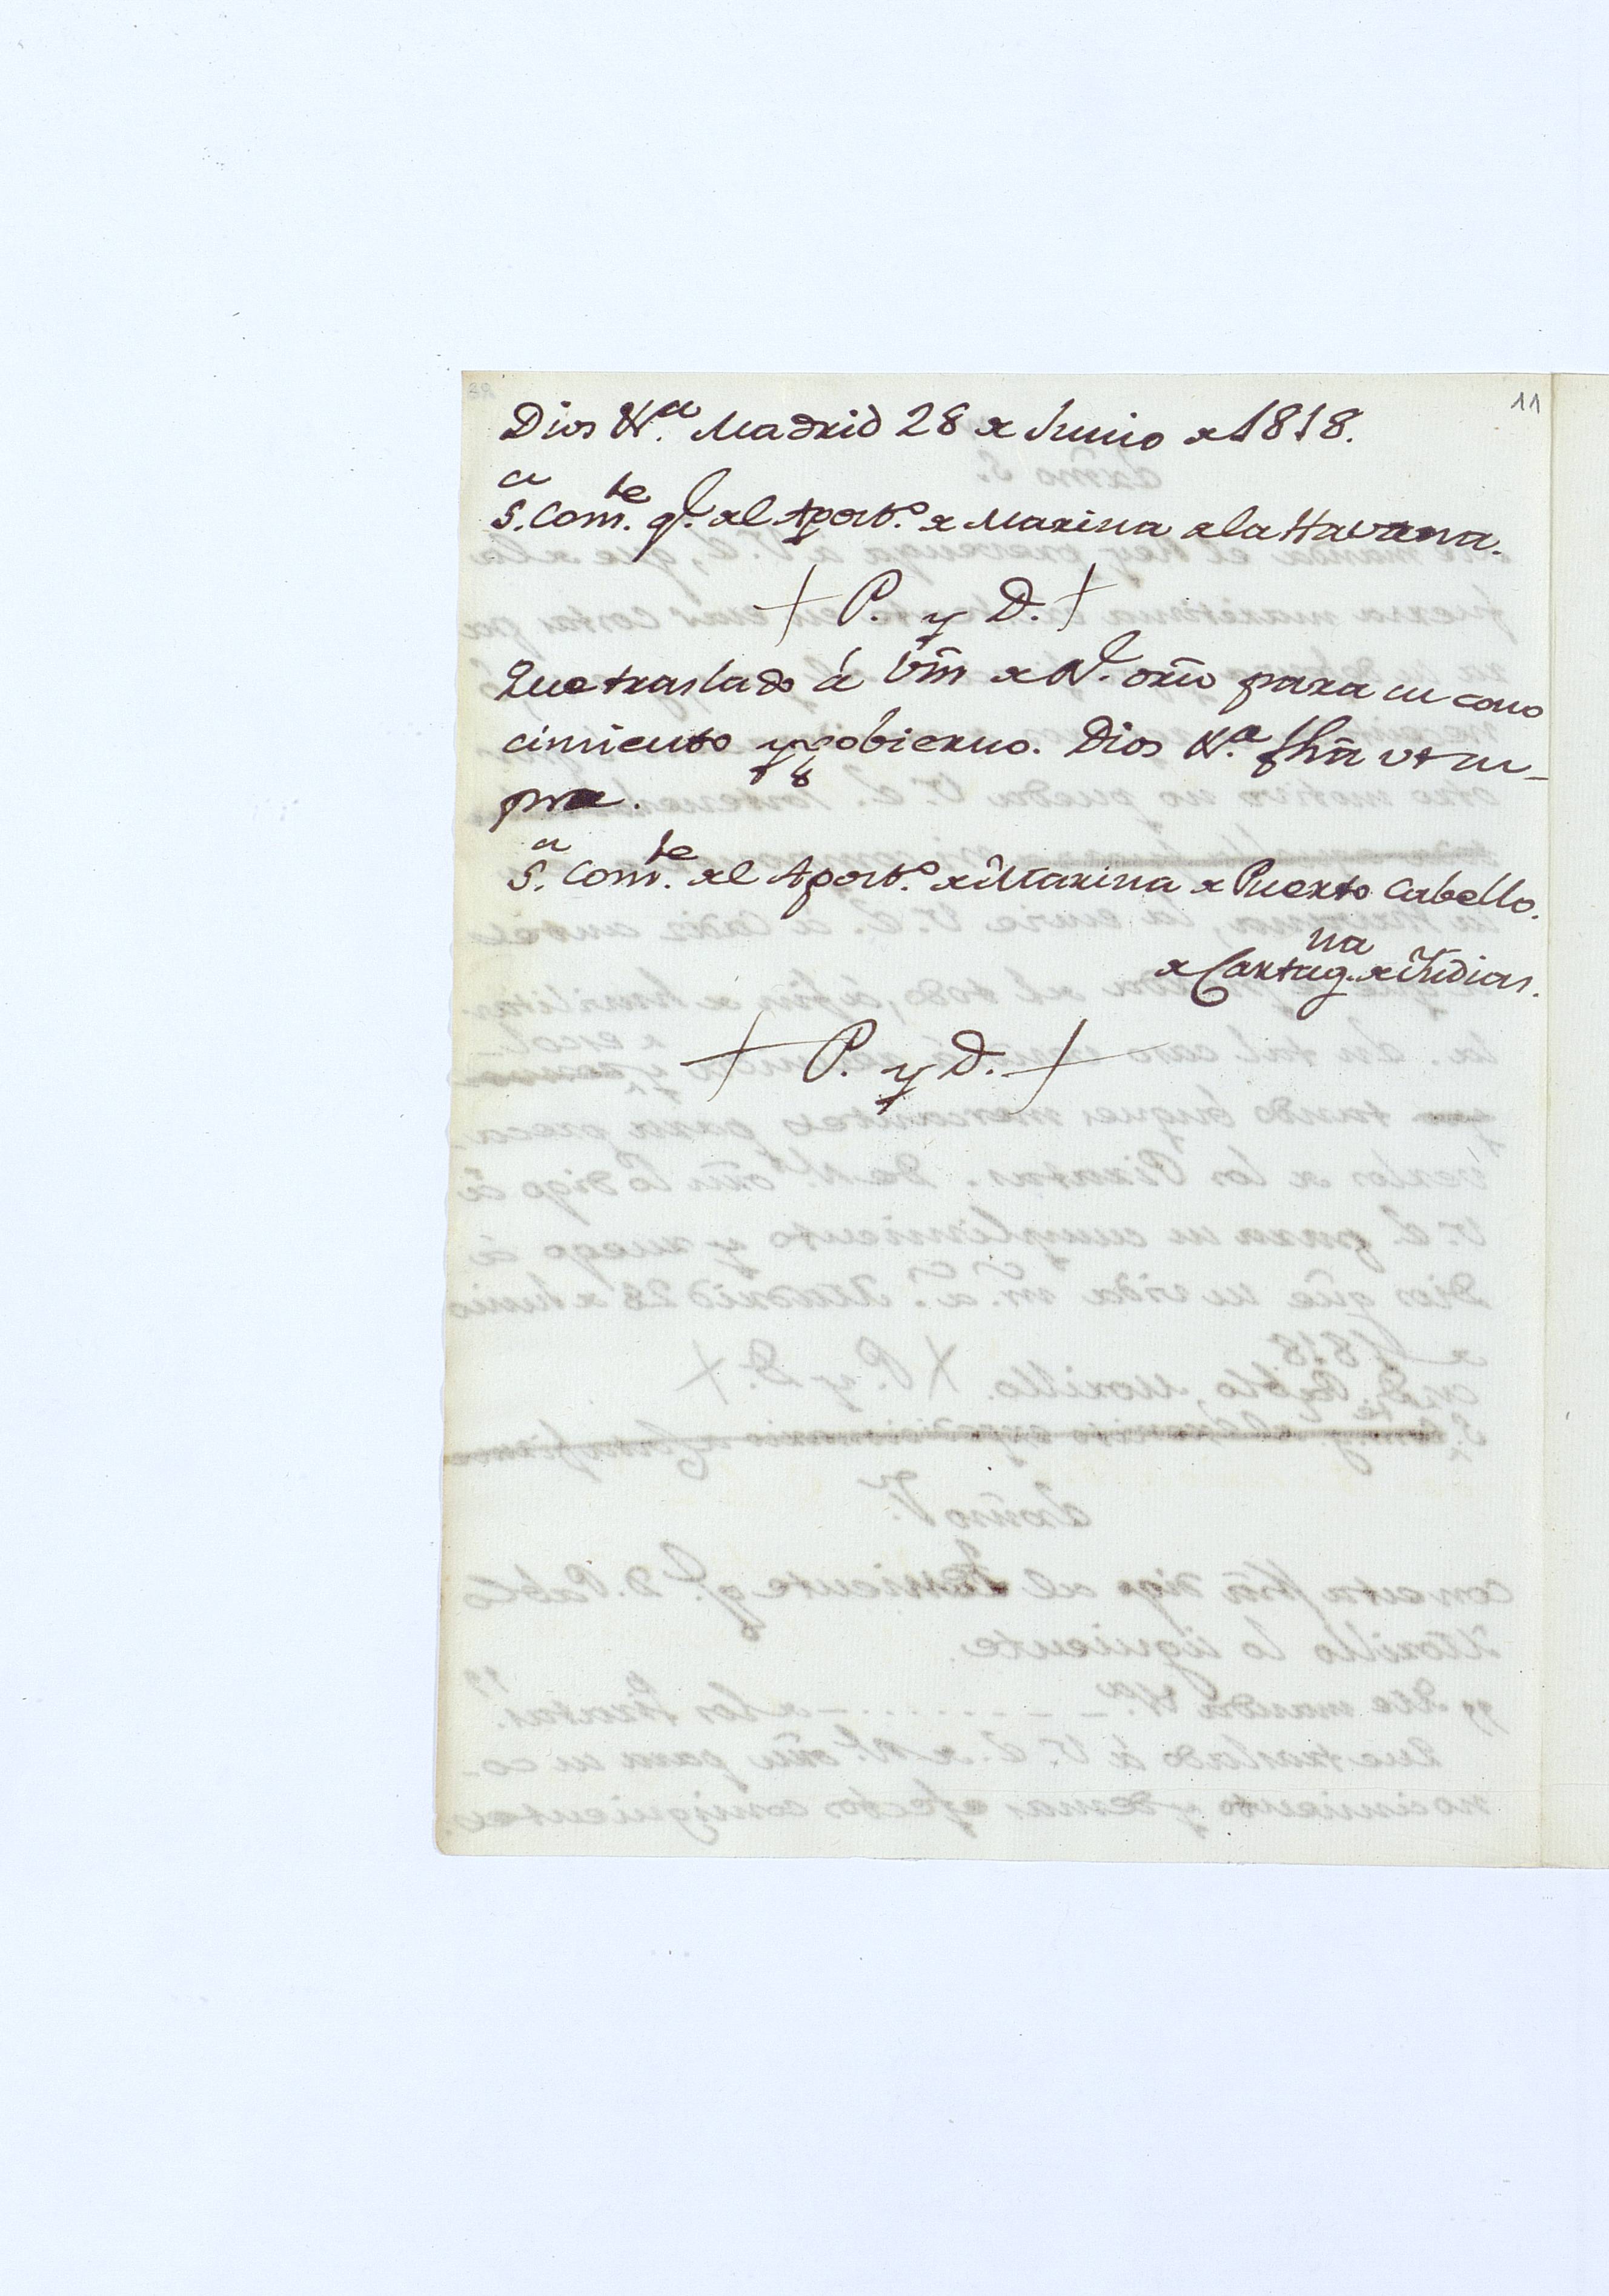 11
Dios &.ª Madrid 28 de Junio de 1818.
S.or Com.te g.l del Apost.o de Marina de la Havana.
+ P. y D. +
Que traslado á Vm de Rl. orñ para su cono
cimiento y gobierno. Dios &.ª fhã ut su-
pra.
S.or Com.te del Apost.o de Marina de Puerto Cabello.
de Cartag.na de Indias.
+ P. y D. +